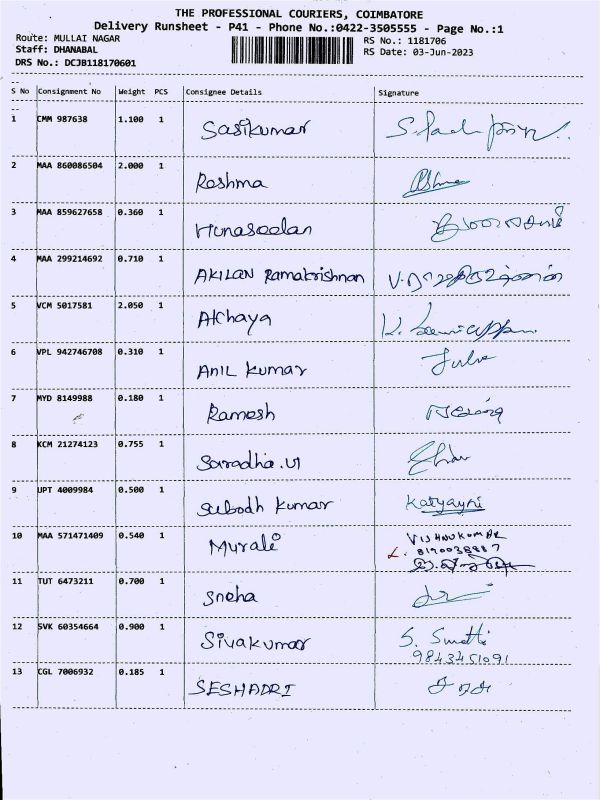 THE PROFESSIONAL COURIERS, COIMBATORE
Delivery Runsheet - P41 - Phone No.:0422-3505555 - Page No.:1
Route: MULLAI NAGAR RS No.: 1181706
Staff: DHANABAL RS Date: 03-Jun-2023
DRS No.: DCJB118170601
S No Consignment No Weight PCS Consignee Details Signature
1 CMM 987638 1.100 1 Sasikumar
2 MAA 860086504 2.000 1 Reshma
3 MAA 859627658 0.360 1 Hunaseelan
4 MAA 299214692 0.710 1 AKILAN Ramakrishnan
5 VCM 5017581 2.050 1 Atchaya
6 VPL 942746708 0.310 1 Anil Kumar
7 MYD 8149988 0.180 1 Ramesh
8 KCM 21274123 0.755 1 Saradha.
9 UPT 4009984 0.500 1 Subodh Kumar Katyayni
10 MAA 571471409 0.540 1 Murali VISHNUKUMAR
11 TUT 6473211 0.700 1 Sneha
12 SVK 60354664 0.900 1 Sivakumar S.
9843451091
13 CGL 7006932 0.185 1 SESHADRI